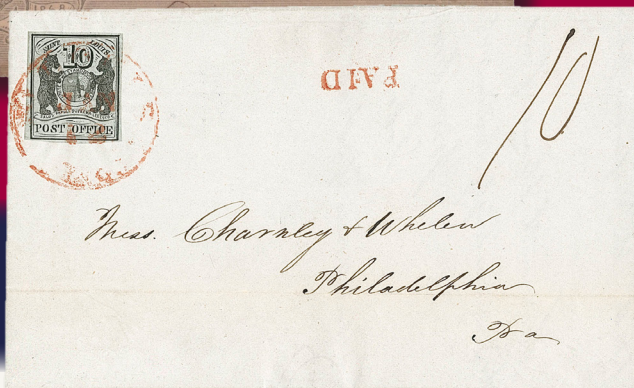 1868
SAINT LOUIS
10
POST OFFICE
PAID
10
Mess. Charnley & Whelen
Philadelphia
Pa